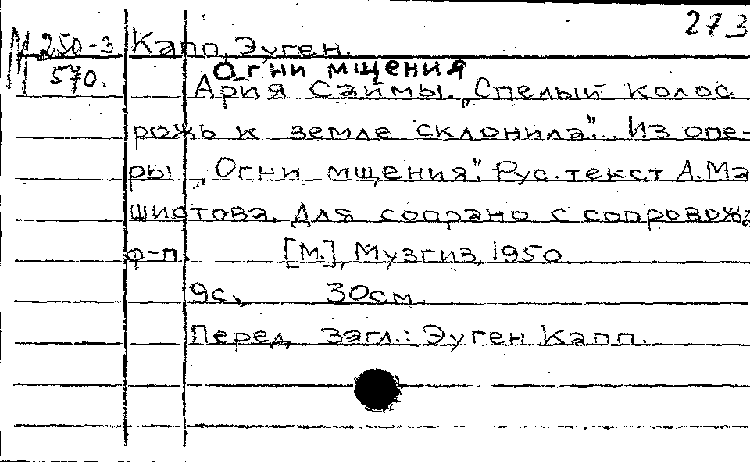 М 250-3 Капп, Эуген. 273
570. Огни мщения
Ария Саймы. „Спелый колос
рожь к земле склонила". Из опе-
ры „Огни мщения". Рус. текст А. Ма
шистова. Для сопрано с сопровожд
ф-п. [М.], Музгиз, 1950.
9с. 30см.
Перед загл.: Эуген Капп.